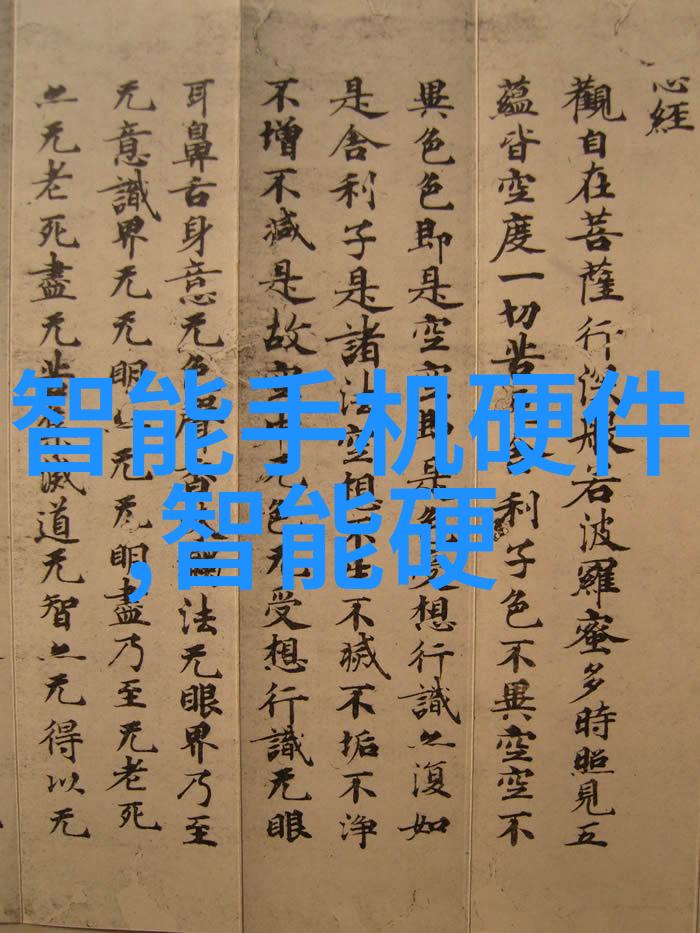 心経
觀自在菩薩行深般若波羅蜜多時照見五
蘊皆空度一切苦利子色不異空空不
異色色即是空空即是色受想行識亦復如
是舍利子是諸法空想不生不滅不垢不淨
不增不減是故空中无色无受想行識无眼
耳鼻舌身意无色聲香法无眼界乃至
无意識界无无明亦无无明盡乃至无老死
亦无老死盡无苦集滅道无智亦无得以无
智能手机硬件
,智能硬